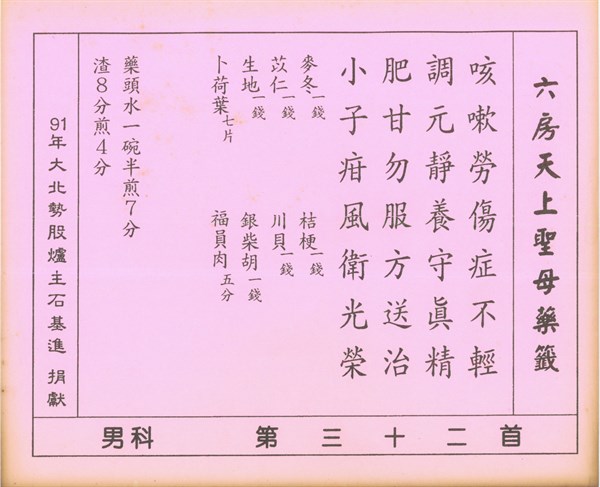 六房天上聖母藥籤
咳嗽勞傷症不輕
調元靜養守眞精
肥甘勿服方送治
小子疳風衛光榮
麥冬一錢 桔梗一錢
苡仁一錢 川貝一錢
生地一錢 銀柴胡一錢
卜荷葉七片 福員肉五分
藥頭水一碗半煎7分
渣8分煎4分
91年大北勢股爐主石基進 捐獻
男科 第三十二首